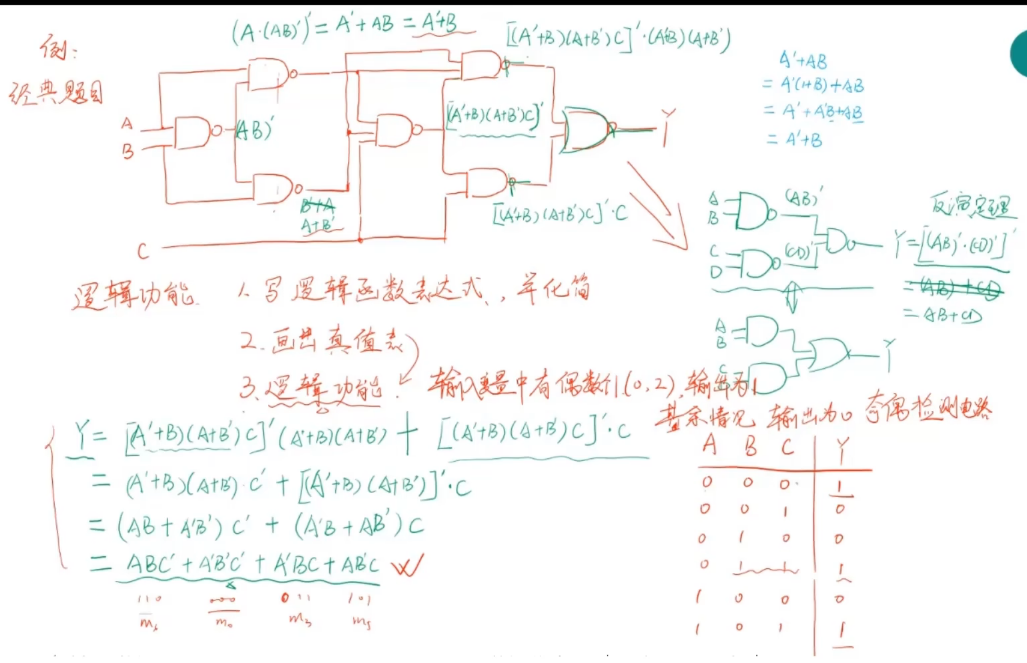 例:
经典题目
(A·(AB)')' = A'+AB = A'+B
[(A'+B)(A+B')C]'·(A'+B)(A+B')
A
B
(AB)'
B'+A
A+B'
[(A'+B)(A+B')C]'
[(A'+B)(A+B')C]'·C
Y
C
A'+AB
= A'(1+B)+AB
= A'+A'B+AB
= A'+B
A
B
(AB)'
C
D
(CD)'
反演定理
Y=[(AB)'·(CD)']'
= (AB)+CD
= AB+CD
A
B
C
Y
逻辑功能. 1. 写逻辑函数表达式, 并化简
2. 画出真值表
3. 逻辑功能. 输入变量中有偶数个1(0,2), 输出为1
其余情况 输出为0 奇偶检测电路
Y = [(A'+B)(A+B')C]'(A'+B)(A+B') + [(A'+B)(A+B')C]'·C
= (A'+B)(A+B')·C' + [(A'+B)(A+B')]'·C
= (AB+A'B')C' + (A'B+AB')C
= ABC' + A'B'C' + A'BC + AB'C
110 000 011 101
m₀ m₃ m₅
A B C Y
0 0 0 1
0 0 1 0
0 1 0 0
0 1 1 1
1 0 0 0
1 0 1 1